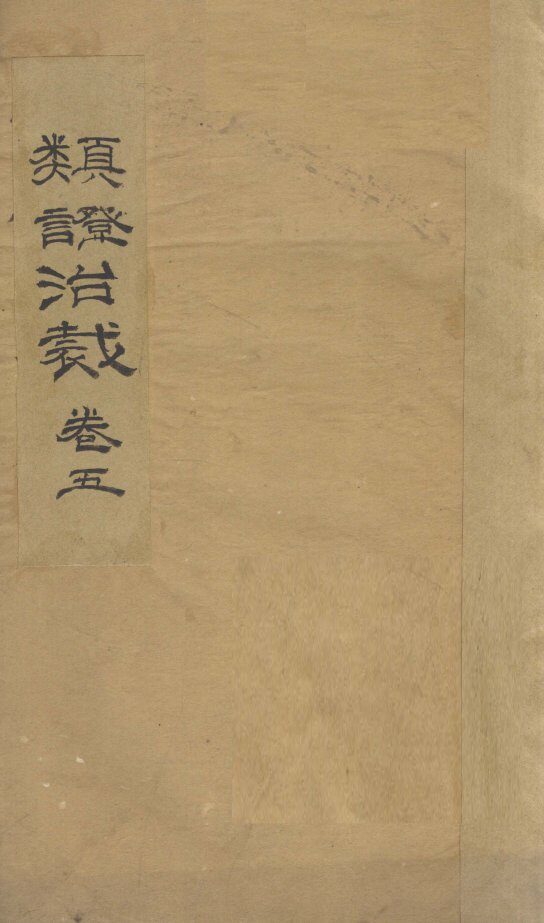 類證治裁 卷五